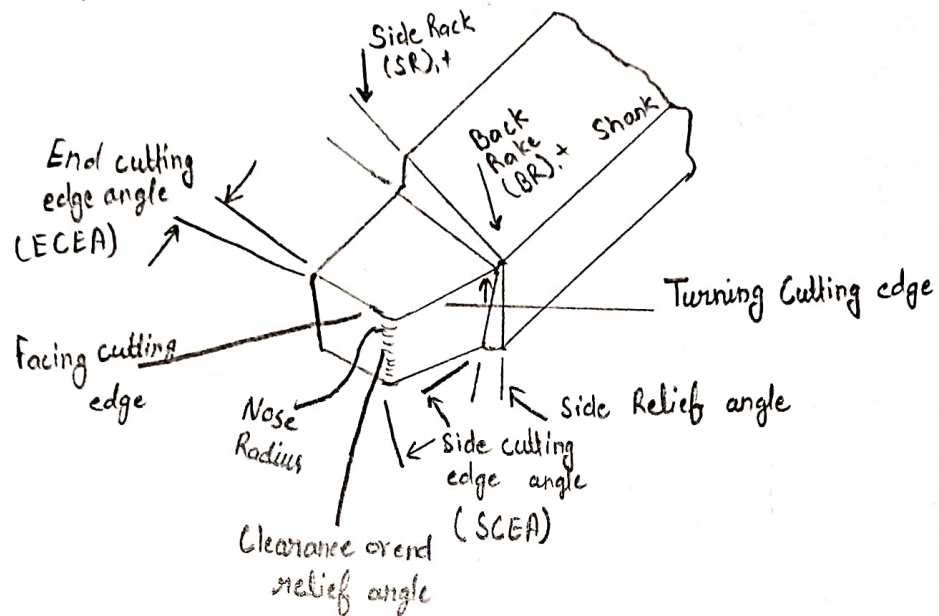 Side Rack
(SR),+
Back
Rake
(BR),+
Shank
End cutting
edge angle
(ECEA)
Turning Cutting edge
Facing cutting
edge
Nose
Radius
Side Relief angle
Side cutting
edge angle
(SCEA)
Clearance or end
relief angle